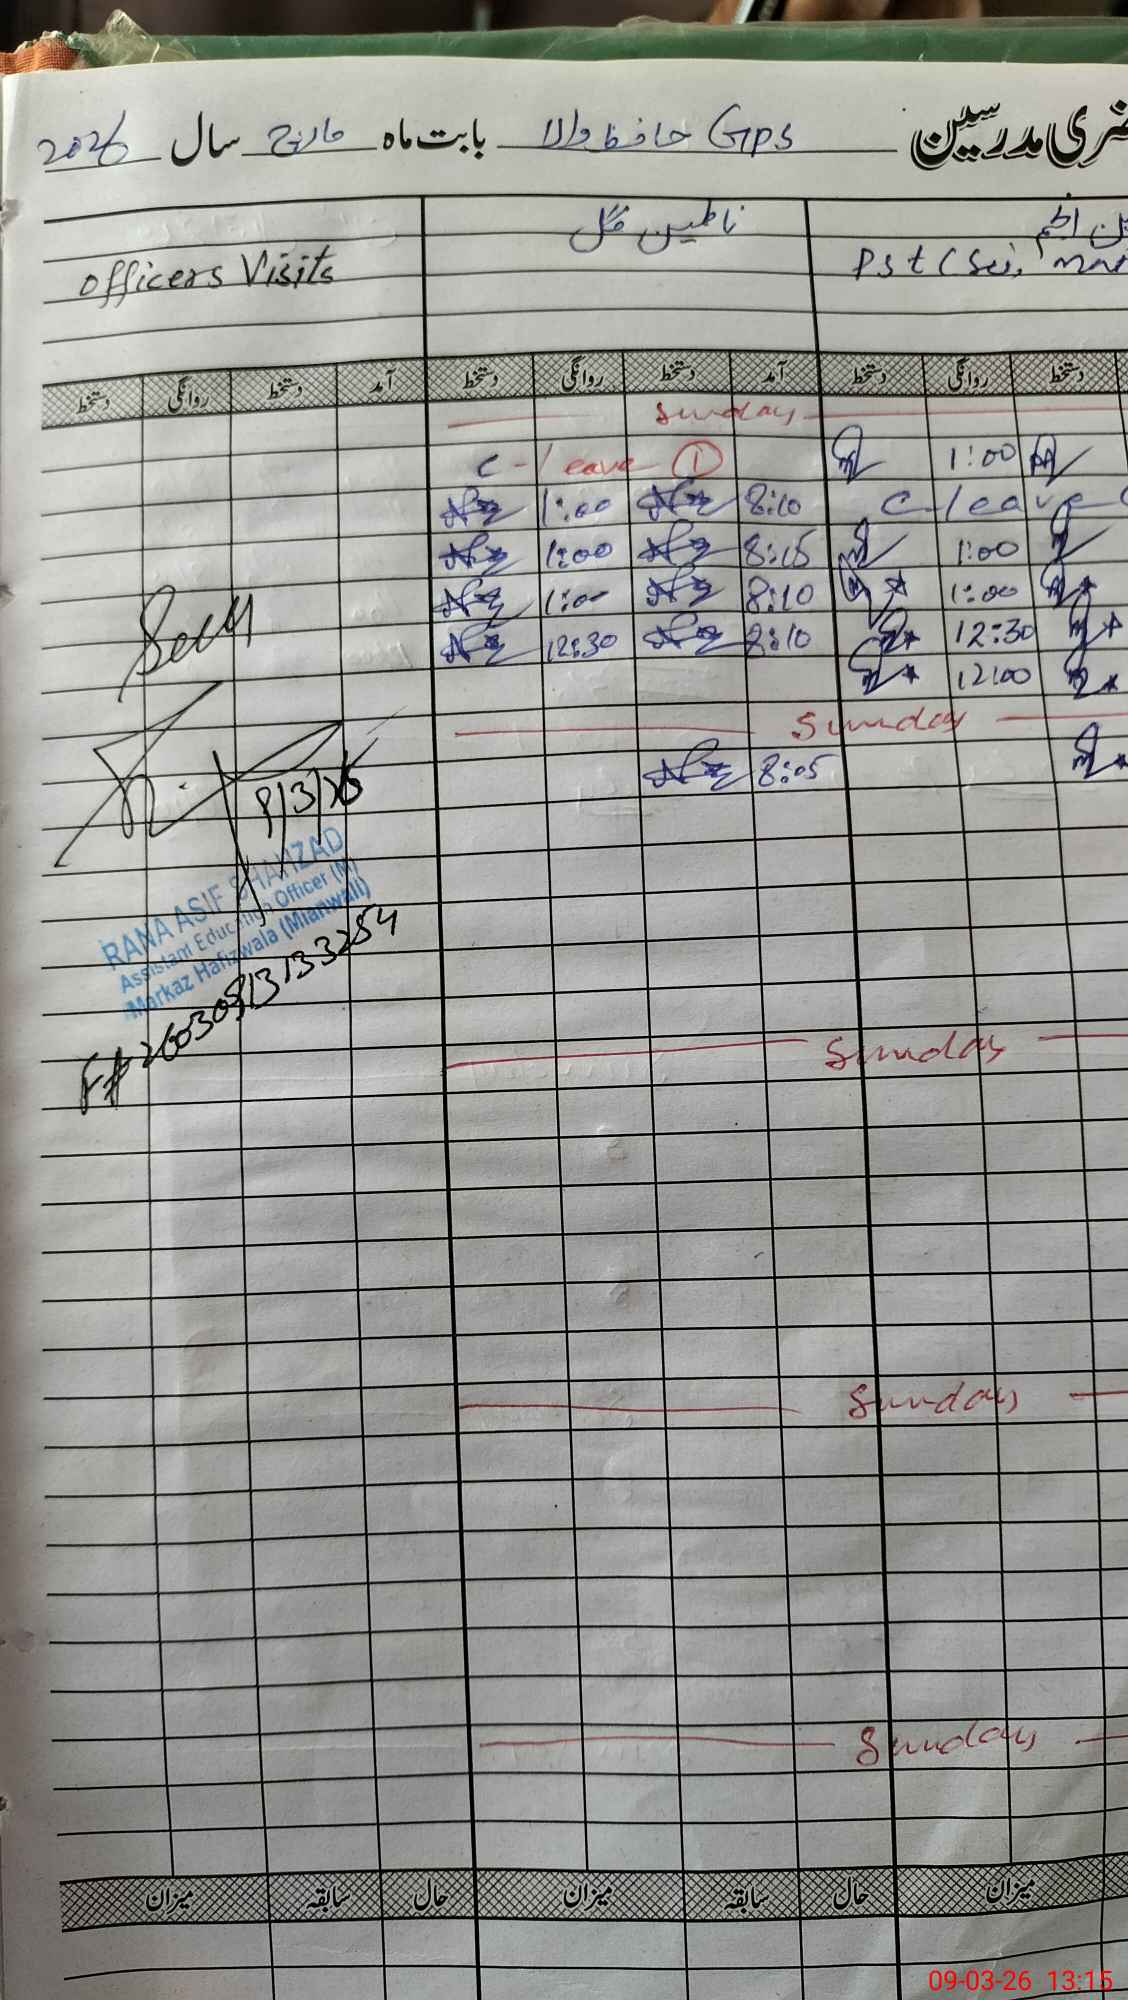 حاضری مدرسین Gps حافظ والا بابت ماہ مارچ سال 2026
Pst (Sci,
officers Visits
دستخط روانگی دستخط آمد دستخط روانگی دستخط آمد دستخط روانگی دستخط
Sunday
1:00 C-leave ①
C-leave 8:10 1:00
1:00 8:15 1:00
1:00 8:10 1:00
12:30 8:10 12:30
12:00
Sunday
8:05
9/3/26
RANA ASIF SHAHZAD
Assistant Education Officer (M)
Markaz Hafizwala (Mianwali)
Sunday
Sunday
Sunday
میزان حال سابقہ میزان حال سابقہ میزان
09-03-26 13:15